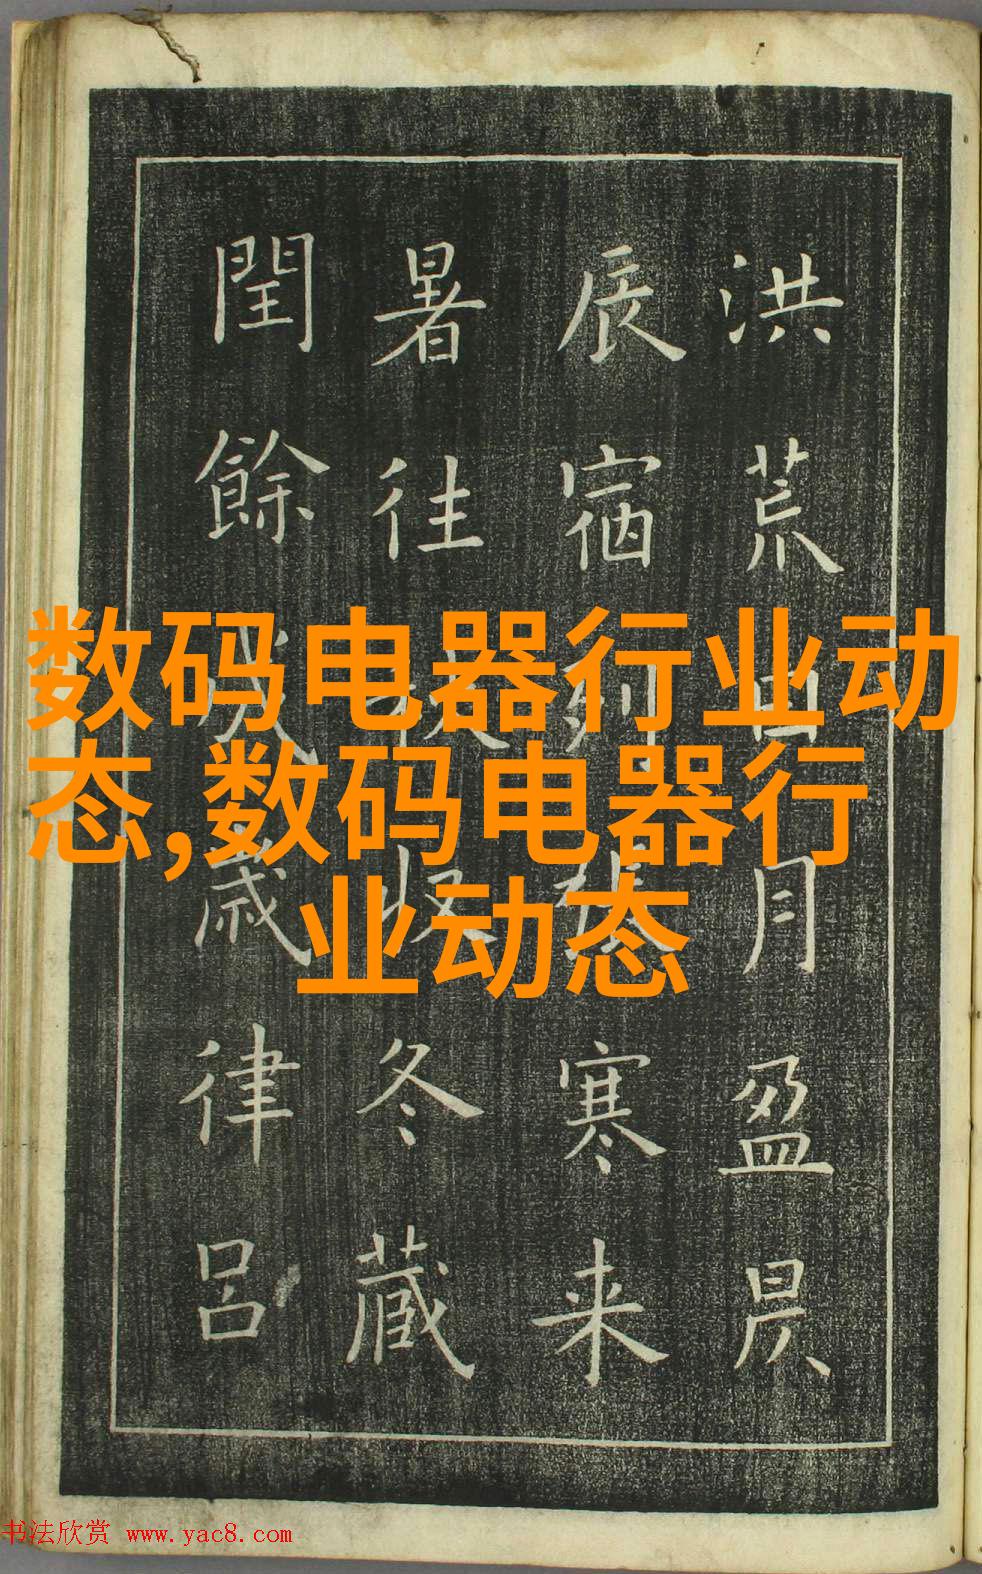 洪荒日月盈昃
辰宿列張寒来
暑往秋收冬藏
閏餘成歲律呂
数码电器行业动
态,数码电器行
业动态
书法欣赏 www.yac8.com